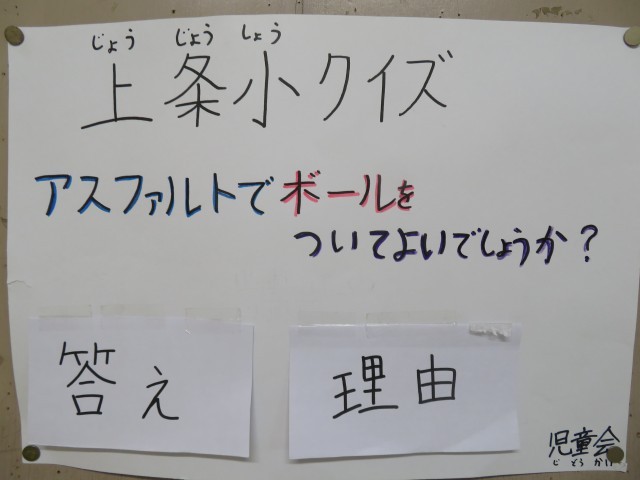 じょう じょう しょう
上条小クイズ
アスファルトでボールを
ついてよいでしょうか？
答え
理由
児童会
じどうかい